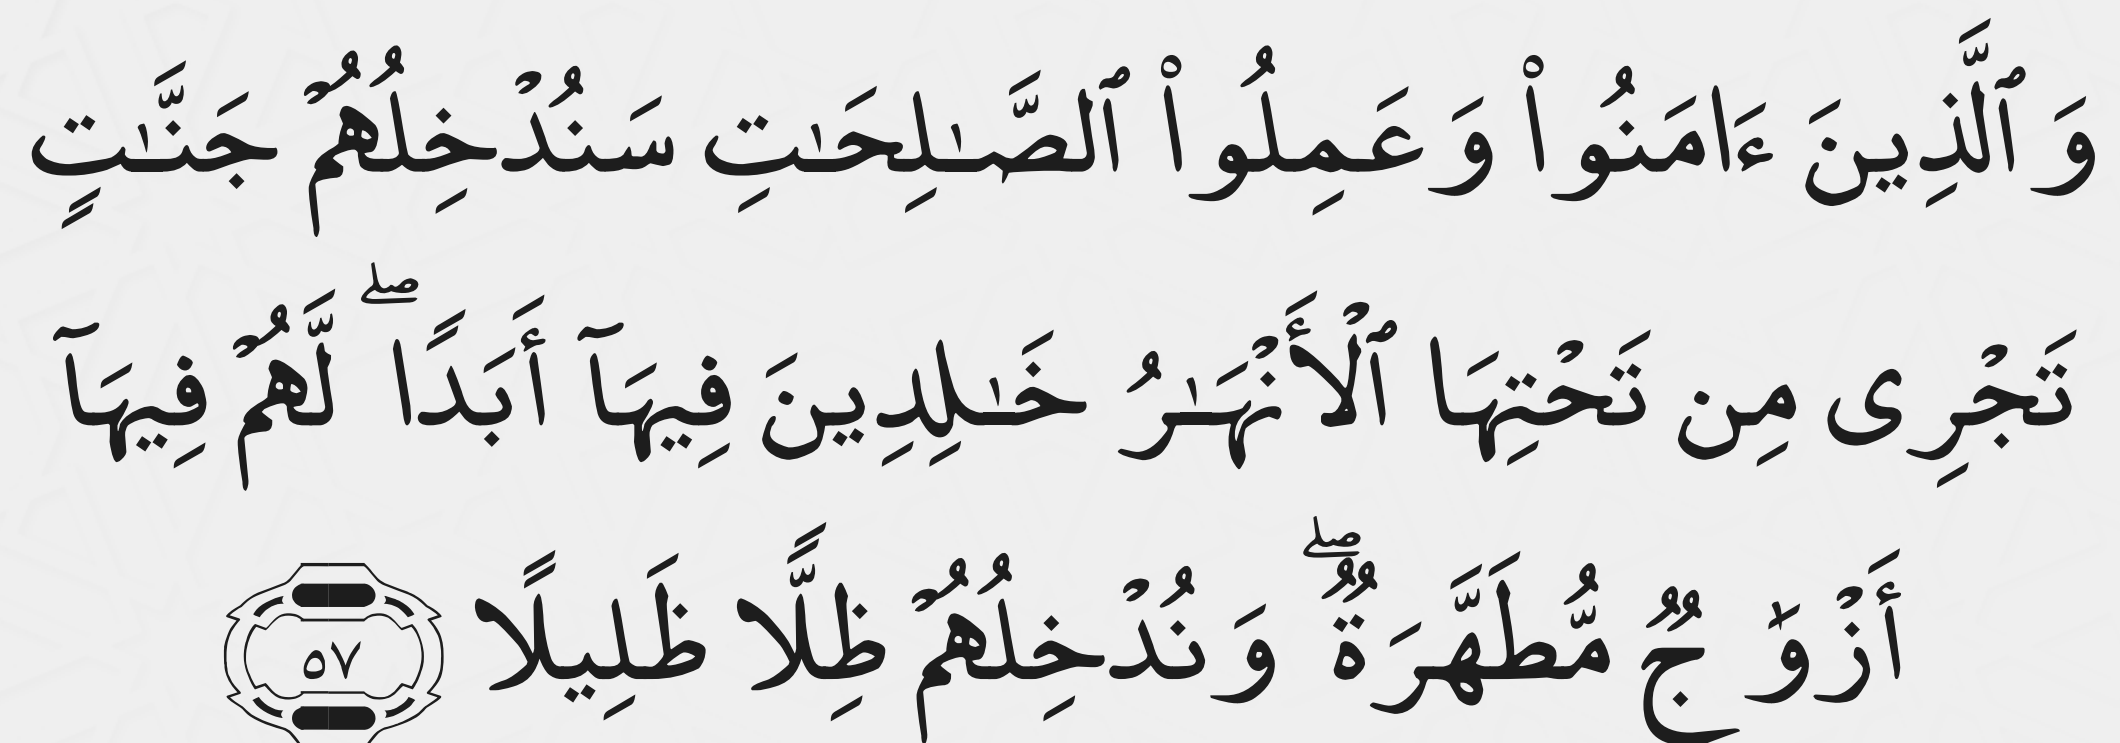 وَٱلَّذِينَ ءَامَنُوا۟ وَعَمِلُوا۟ ٱلصَّـٰلِحَـٰتِ سَنُدْخِلُهُمْ جَنَّـٰتٍ
تَجْرِى مِن تَحْتِهَا ٱلْأَنْهَـٰرُ خَـٰلِدِينَ فِيهَآ أَبَدًا ۖ لَّهُمْ فِيهَآ
أَزْوَٰجٌ مُّطَهَّرَةٌ ۖ وَنُدْخِلُهُمْ ظِلًّا ظَلِيلًا ٥٧